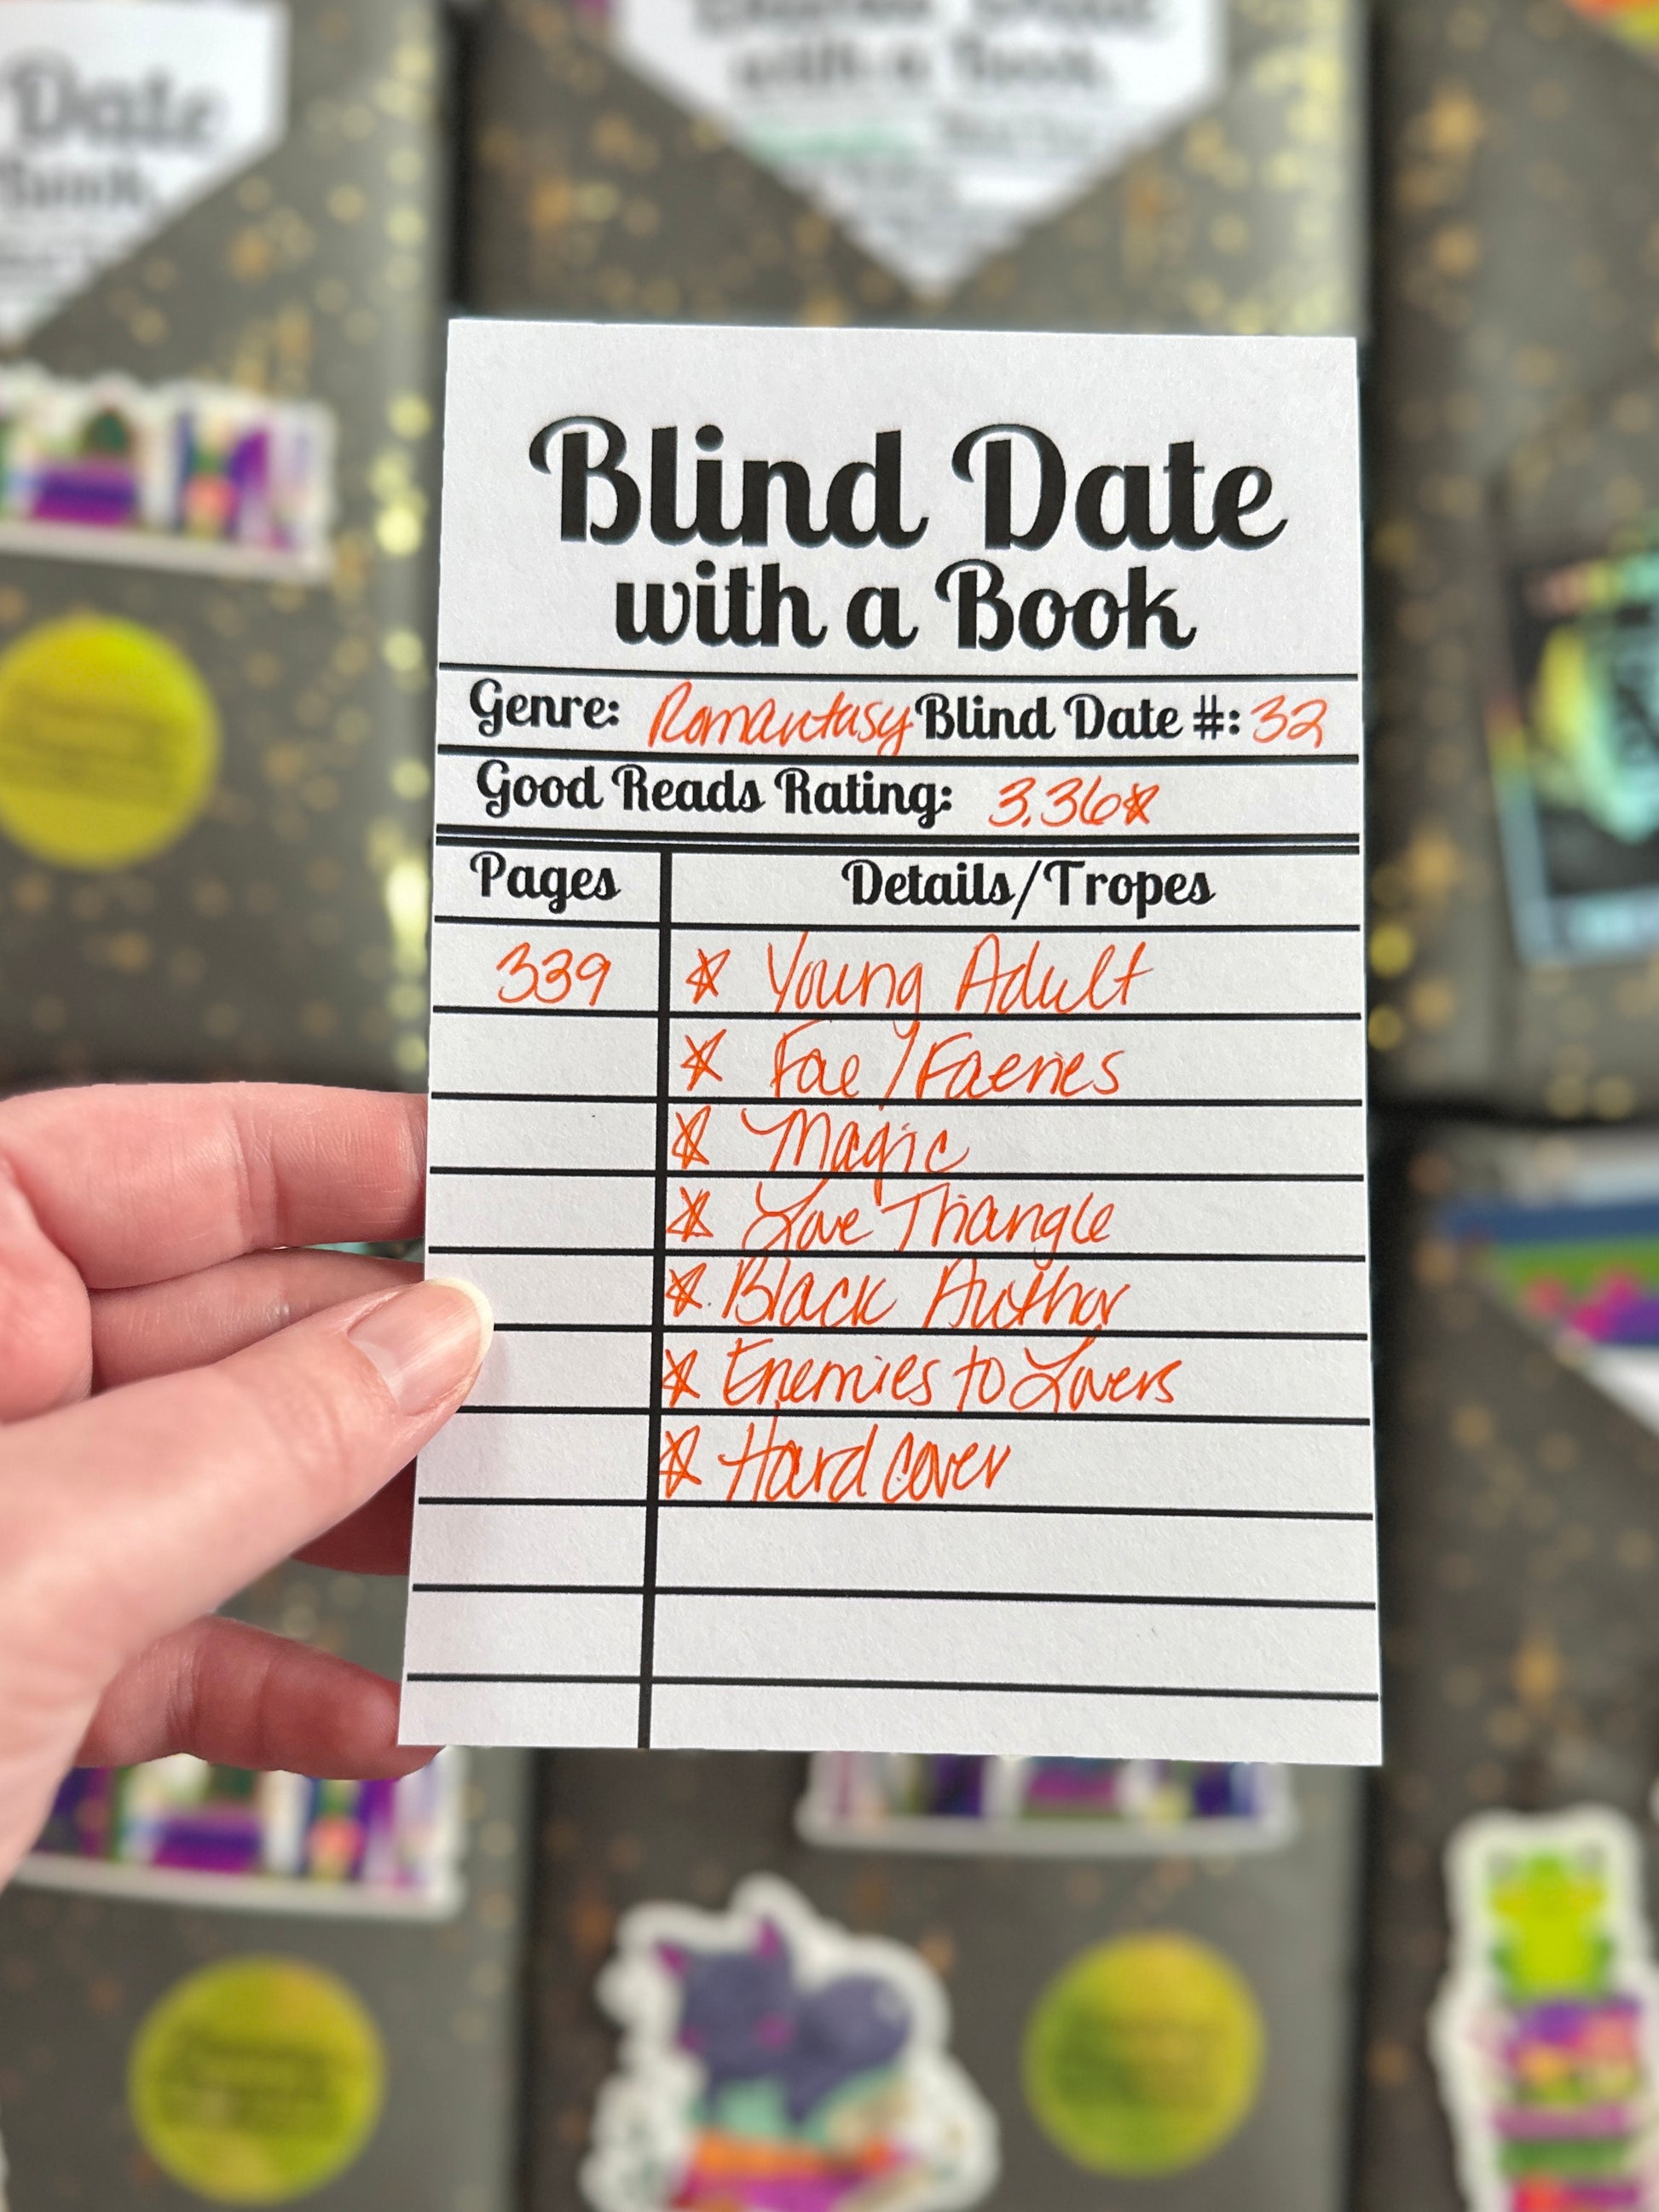 Date
with a Book
Blind Date
with a Book
Genre: Romantasy Blind Date #: 32
Good Reads Rating: 3.36☆
Pages Details/Tropes
339 ☆ Young Adult
☆ Fae/Faeries
☆ Magic
☆ Love Triangle
☆ Black Author
☆ Enemies to Lovers
☆ Hard cover